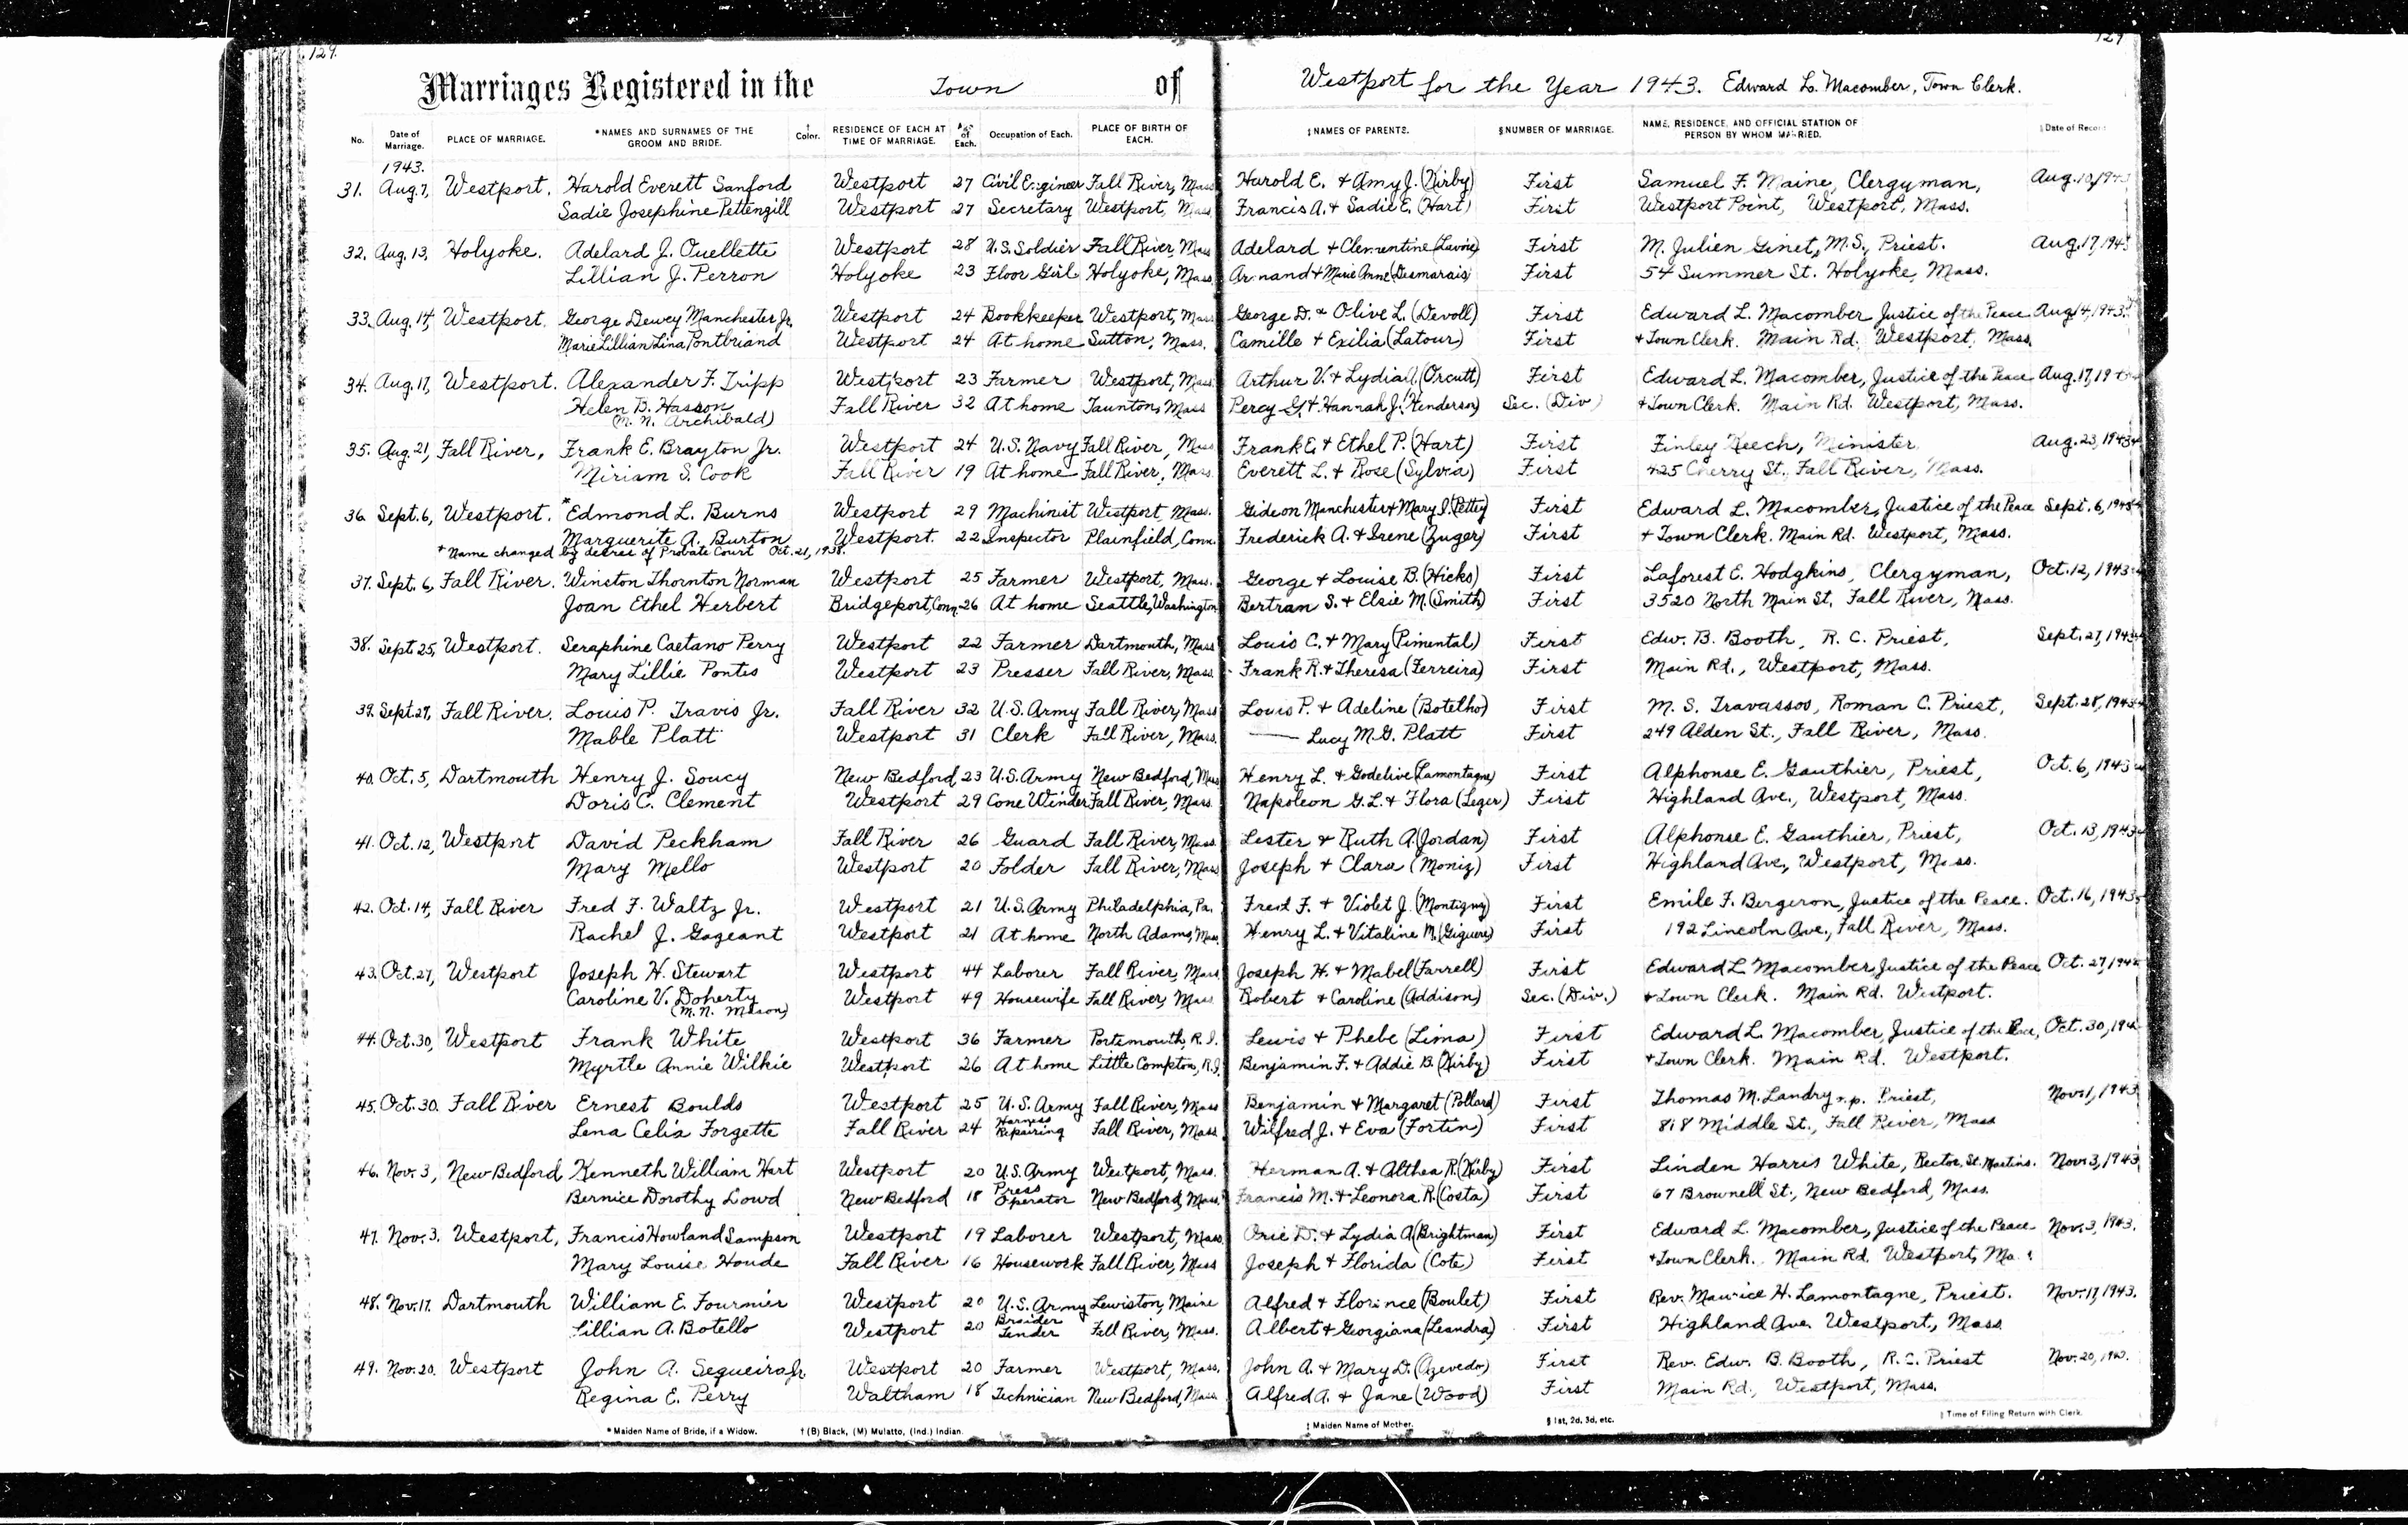 129. 129
Marriages Registered in the Town of Westport for the Year 1943. Edward L. Macomber, Town Clerk.
No. Date of Marriage. PLACE OF MARRIAGE. *NAMES AND SURNAMES OF THE GROOM AND BRIDE. † Color. RESIDENCE OF EACH AT TIME OF MARRIAGE. Age of Each. Occupation of Each. PLACE OF BIRTH OF EACH. ‡NAMES OF PARENTS. §NUMBER OF MARRIAGE. NAME, RESIDENCE, AND OFFICIAL STATION OF PERSON BY WHOM MARRIED. ‖Date of Record
1943.
31. Aug. 7, Westport. Harold Everett Sanford Westport 27 Civil Engineer Fall River, Mass Harold E. & Amy J. (Kirby) First Samuel F. Maine, Clergyman, Aug. 10, 1943
Sadie Josephine Pettengill Westport 27 Secretary Westport, Mass. Francis A. & Sadie E. (Hart) First Westport Point, Westport, Mass.
32. Aug. 13, Holyoke. Adelard J. Ouellette Westport 28 U.S. Soldier Fall River, Mass Adelard & Clementine (Lavoie) First M. Julien Ginet, M.S., Priest. Aug. 17, 1943
Lillian J. Perron Holyoke 23 Floor Girl Holyoke, Mass. Armand & Marie Anne (Desmarais) First 54 Summer St. Holyoke, Mass.
33. Aug. 14, Westport. George Dewey Manchester Jr. Westport 24 Bookkeeper Westport, Mass George D. & Olive L. (Devoll) First Edward L. Macomber Justice of the Peace Aug 14, 1943.
Marie Lillian Lina Pontbriand Westport 24 At home Sutton, Mass. Camille & Exilia (Latour) First & Town Clerk. Main Rd. Westport, Mass
34. Aug. 17, Westport. Alexander F. Tripp Westport 23 Farmer Westport, Mass. Arthur V. & Lydia A. (Orcutt) First Edward L. Macomber, Justice of the Peace Aug. 17, 19
Helen B. Hasson Fall River 32 At home Taunton, Mass Percy G. & Hannah J. (Henderson) Sec. (Div) & Town Clerk. Main Rd. Westport, Mass.
(M. N. Archibald)
35. Aug. 21, Fall River, Frank E. Brayton Jr. Westport 24 U.S. Navy Fall River, Mass Frank E. & Ethel P. (Hart) First Finley Keech, Minister Aug. 23, 1943
Miriam S. Cook Fall River 19 At home Fall River, Mass. Everett L. & Rose (Sylvia) First 425 Cherry St., Fall River, Mass.
36. Sept. 6, Westport. *Edmond L. Burns Westport 29 Machinist Westport, Mass. Gideon Manchester & Mary J. (Pettey) First Edward L. Macomber, Justice of the Peace Sept. 6, 1943
Marguerite A. Burton Westport. 22 Inspector Plainfield, Conn. Frederick A. & Irene (Zuger) First & Town Clerk. Main Rd. Westport, Mass.
* Name changed by decree of Probate Court Oct. 21, 1938.
37. Sept. 6, Fall River. Winston Thornton Norman Westport 25 Farmer Westport, Mass. George & Louise B. (Hicks) First Laforest E. Hodgkins, Clergyman, Oct. 12, 1943
Joan Ethel Herbert Bridgeport, Conn. 26 At home Seattle, Washington Bertram S. & Elsie M. (Smith) First 3520 North Main St. Fall River, Mass.
38. Sept. 25, Westport. Seraphine Caetano Perry Westport 22 Farmer Dartmouth, Mass Louis C. & Mary (Pimental) First Edw. B. Booth, R. C. Priest, Sept. 27, 1943
Mary Lillie Pontes Westport 23 Presser Fall River, Mass. Frank R. & Theresa (Ferreira) First Main Rd., Westport, Mass.
39. Sept. 27, Fall River. Louis P. Travis Jr. Fall River 32 U.S. Army Fall River, Mass Louis P. & Adeline (Botelho) First M. S. Travassos, Roman C. Priest, Sept. 28, 1943
Mable Platt Westport 31 Clerk Fall River, Mass. — Lucy M. G. Platt First 249 Alden St., Fall River, Mass.
40. Oct. 5, Dartmouth Henry J. Soucy New Bedford 23 U.S. Army New Bedford, Mass Henry L. & Godelive (Lamontagne) First Alphonse E. Gauthier, Priest, Oct. 6, 1943
Doris C. Clement Westport 29 Cone Winder Fall River, Mass. Napoleon G. L. & Flora (Leger) First Highland Ave., Westport, Mass.
41. Oct. 12, Westport David Peckham Fall River 26 Guard Fall River, Mass. Lester & Ruth A. (Jordan) First Alphonse E. Gauthier, Priest, Oct. 13, 1943
Mary Mello Westport 20 Folder Fall River, Mass Joseph & Clara (Moniz) First Highland Ave, Westport, Mass.
42. Oct. 14, Fall River Fred F. Waltz Jr. Westport 21 U.S. Army Philadelphia, Pa. Fred F. & Violet J. (Montigny) First Emile F. Bergeron, Justice of the Peace. Oct. 16, 1943
Rachel J. Gageant Westport 21 At home North Adams, Mass. Henry L. & Vitaline M. (Giguere) First 192 Lincoln Ave., Fall River, Mass.
43. Oct. 27, Westport Joseph H. Stewart Westport 44 Laborer Fall River, Mass Joseph H. & Mabel (Farrell) First Edward L. Macomber, Justice of the Peace Oct. 27, 194
Caroline V. Doherty Westport 49 Housewife Fall River, Mass Robert & Caroline (Addison) Sec. (Div.) & Town Clerk. Main Rd. Westport.
(M. N. Mason)
44. Oct. 30, Westport Frank White Westport 36 Farmer Portsmouth, R.I. Lewis & Phebe (Lima) First Edward L. Macomber, Justice of the Peace, Oct. 30, 194
Myrtle Annie Wilkie Westport 26 At home Little Compton, R.I. Benjamin F. & Addie B. (Kirby) First & Town Clerk. Main Rd. Westport.
45. Oct. 30. Fall River Ernest Boulds Westport 25 U.S. Army Fall River, Mass Benjamin & Margaret (Pollard) First Thomas M. Landry r.p. Priest, Nov. 1, 1943
Lena Celia Forgette Fall River 24 Harness Repairing Fall River, Mass Wilfred J. & Eva (Fortin) First 818 Middle St., Fall River, Mass
46. Nov. 3, New Bedford Kenneth William Hart Westport 20 U.S. Army Westport, Mass. Herman A. & Althea R. (Kirby) First Linden Harris White, Rector, St. Martins. Nov. 3, 1943
Bernice Dorothy Lowd New Bedford 18 Press Operator New Bedford, Mass. Francis M. & Leonora R. (Costa) First 67 Brownell St., New Bedford, Mass.
47. Nov. 3. Westport, Francis Howland Sampson Westport 19 Laborer Westport, Mass. Orie D. & Lydia A (Brightman) First Edward L. Macomber, Justice of the Peace Nov. 3, 1943.
Mary Louise Houde Fall River 16 Housework Fall River, Mass Joseph & Florida (Cote) First & Town Clerk. Main Rd. Westport, Ma
48. Nov. 17. Dartmouth William E. Fournier Westport 20 U.S. Army Lewiston, Maine Alfred & Florince (Boulet) First Rev. Maurice H. Lamontagne, Priest. Nov. 17, 1943.
Lillian A. Botello Westport 20 Braider Tender Fall River, Mass. Albert & Georgiana (Leandra) First Highland Ave. Westport, Mass
49. Nov. 20. Westport John A. Sequeira Jr. Westport 20 Farmer Westport, Mass. John A. & Mary D. (Azevedo) First Rev. Edw. B. Booth, R.C. Priest Nov. 20, 1943.
Regina E. Perry Waltham 18 Technician New Bedford, Mass Alfred A. & Jane (Wood) First Main Rd., Westport, Mass.
*Maiden Name of Bride, if a Widow. †(B) Black, (M) Mulatto, (Ind.) Indian. ‡ Maiden Name of Mother. § 1st, 2d, 3d, etc. ‖ Time of Filing Return with Clerk.